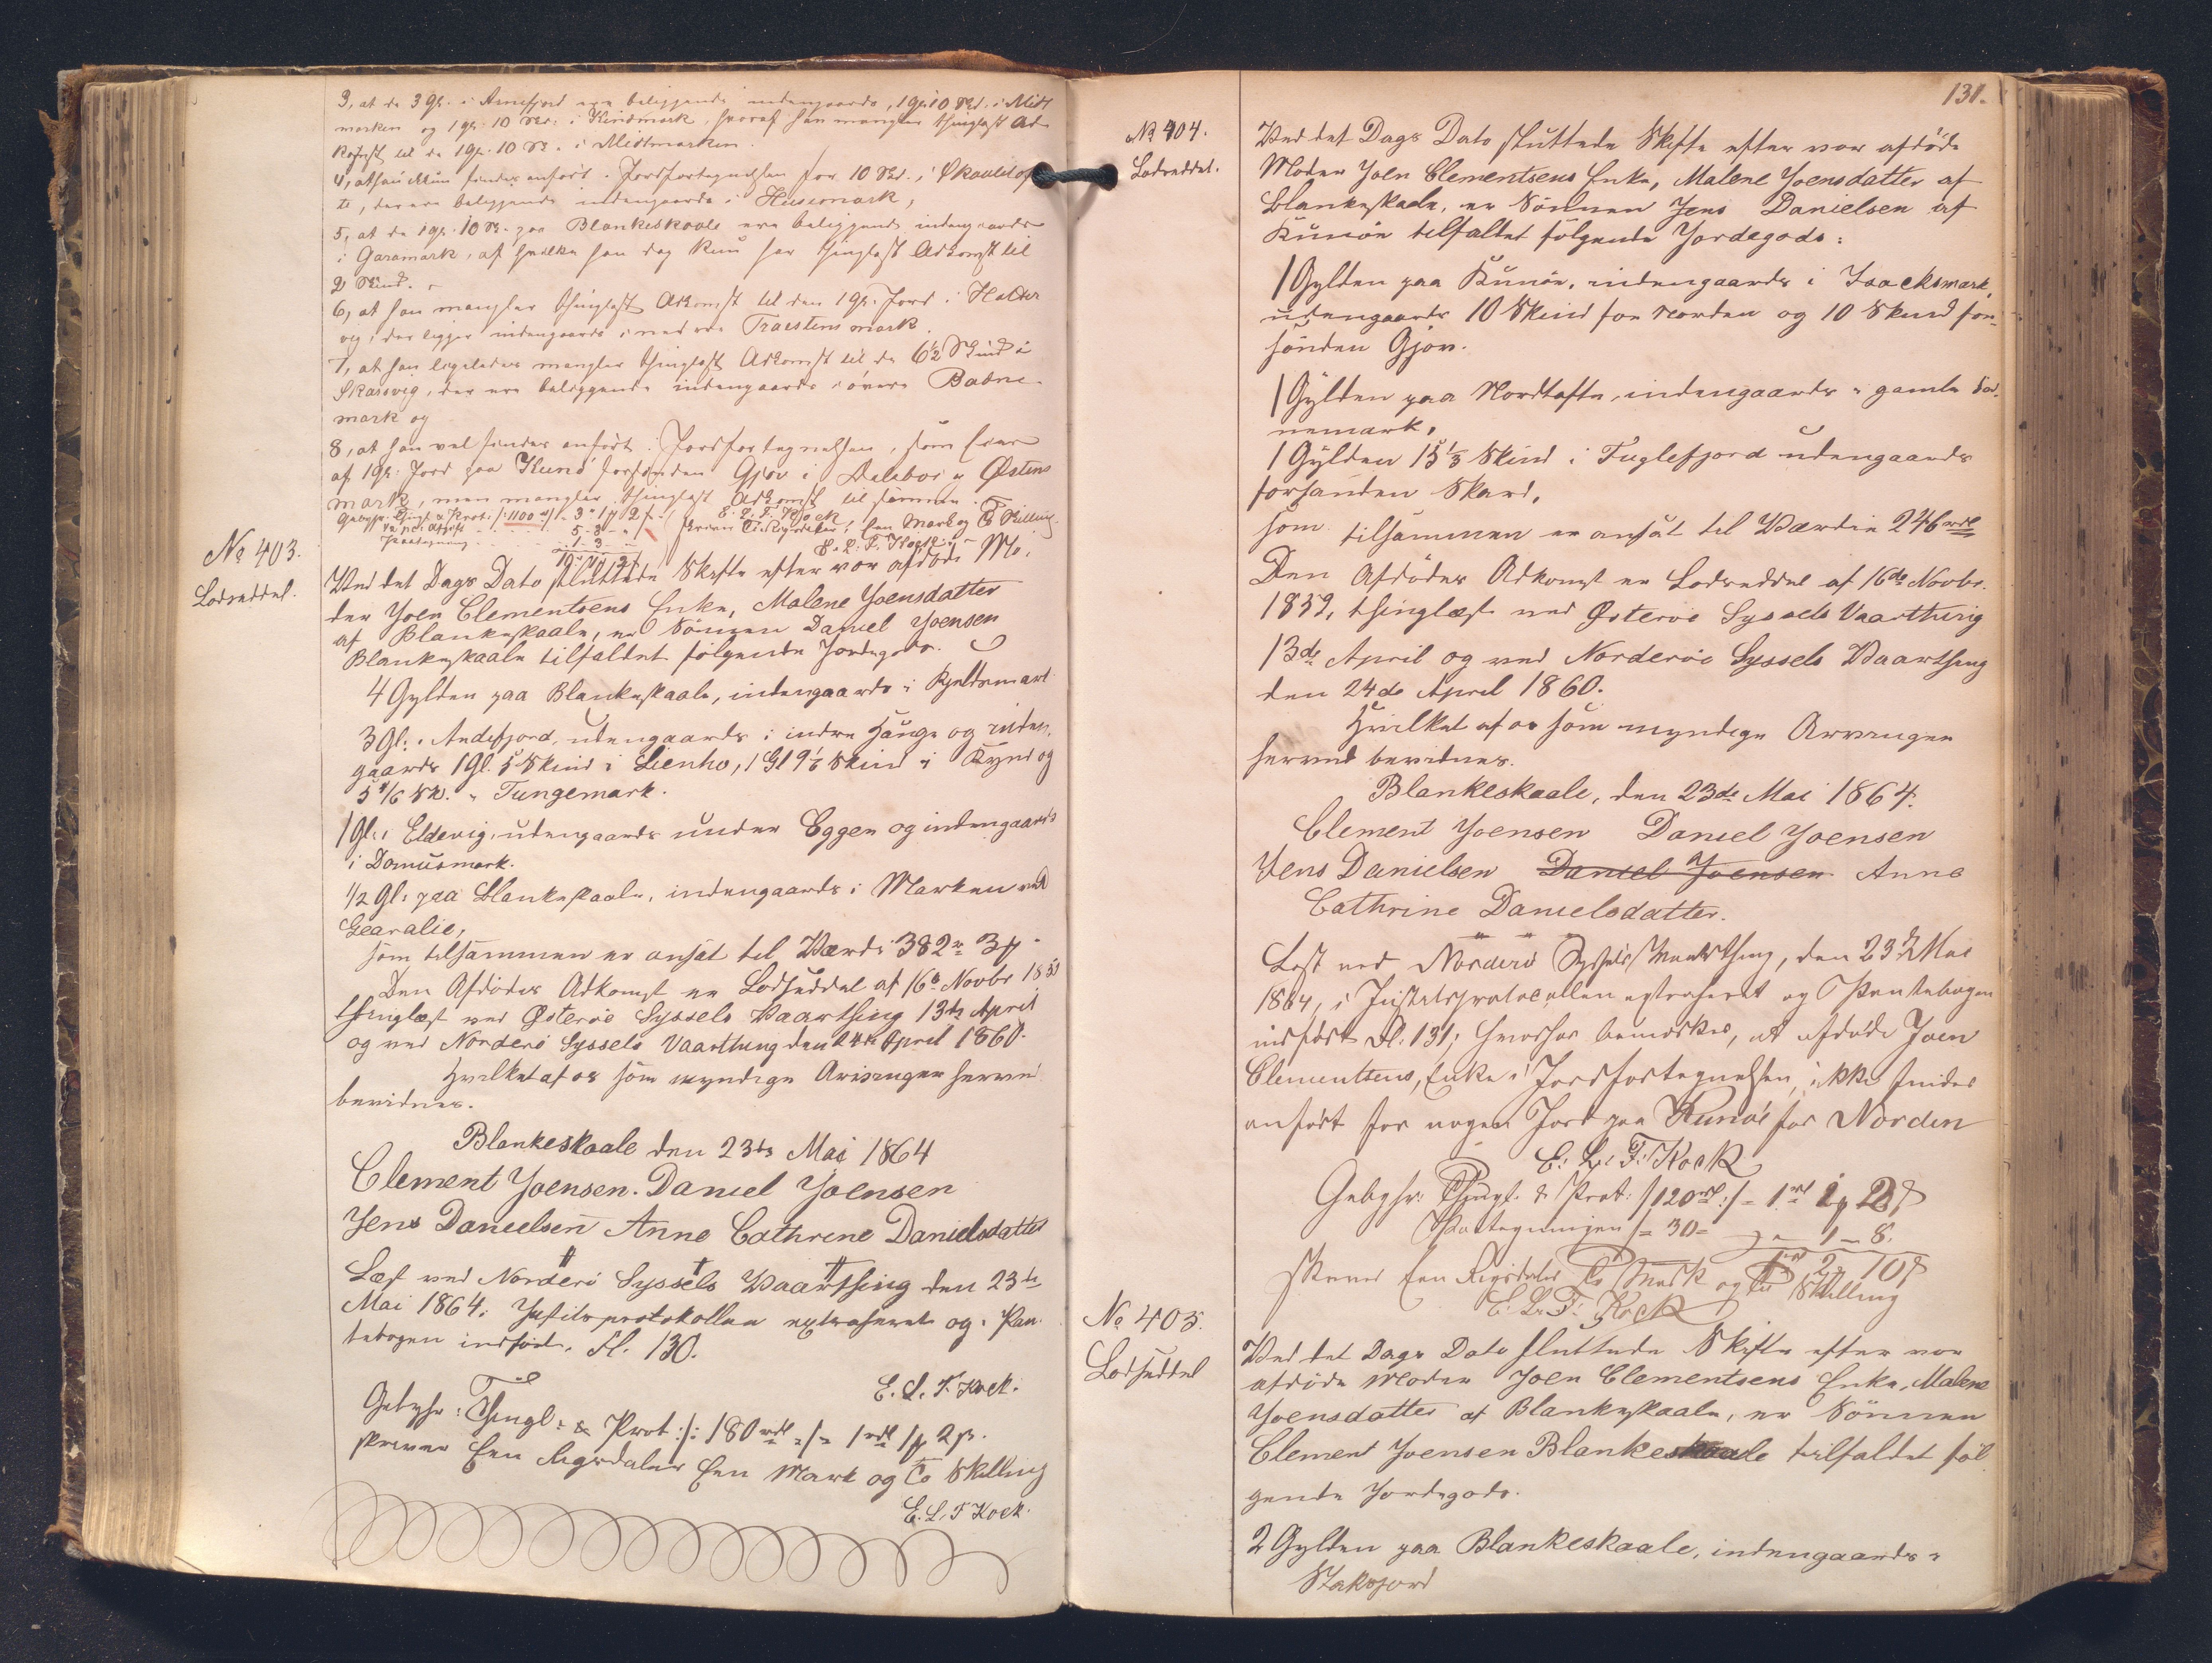 3, at de 3 Gl. i Arnefjord ere beliggende indengaards, 1 Gl. 10 Skd. i Midt
marken og 1 Gl. 10 Skd. i Kindmark, hvoraf han mangler thinglæst Ad-
komst til de 1 Gl. 10 Sk. i Midtmarken.
4, at han kun findes anført i Jordfortegnelsen for 10 Skd. i Skaaletof
te, der ere beliggende indengaards i Husemark,
5, at de 1 Gl. 10 Sk. paa Blankeskaale ere beliggende indengaards
i Garamark, af hvilke han dog kun har thinglæst Adkomst til
2 Skind.
6, at han mangler thinglæst Adkomst til den 1 Gl. Jord i Halder
vig, der ligger indengaards i nedre Traestens mark.
7, at han ligeledes mangler thinglæst Adkomst til de 6½ Skind i
Skarsvig, der ere beliggende indengaards i øvere Badne-
mark og
8, at han vel findes anført i Jordfortegnelsen, som Eier
af 1 Gl. Jord paa Kunø forsønden Gjov i Dalebø i Østens
mark, men mangler thinglæst Adkomst til samme.
E. L. F. Kock
Gebyhr: Thingl. & Prot: /: 1100 rd :/ 3 " 1 ß 2
5 - 3 -
Paategning - 1 - 3
E. L. F. Kock
No 403.
Lodseddel.
Ved det Dags Dato sluttede Skifte efter vor afdøde Mo-
der Joen Clementsens Enke, Malene Joensdatter
af Blankeskaale, er Sönnen Daniel Joensen
Blankeskaale tilfaldet følgende Jordegods.
4 Gylden paa Blankeskaale, indengaards i Kjeldemark
3 Gl. i Andefjord, udengaards i indre Hauge og inden-
gaards 1 Gl. 5 Skind i Lienho, 1 Gl 9 1/6 Skind i Kyni og
5 5/6 Sk. i Tungemark.
1 Gl. i Eldevig, udengaards under Eggen og indengaards
i Domusmark.
1/2 Gl. paa Blankeskaale, indengaards i Marken ved
Gearalie,
som tilsammen er ansat til Værdi 382 rd 3 ß
Den Afdødes Adkomst er Lodseddel af 16de Novbr 1859
thinglæst ved Østerøe Syssels Vaarthing 13de April
og ved Norderø Syssels Vaarthing den 24de April 1860.
Hvilket af os som myndige Arvinger herved
bevidnes.
Blankeskaale den 23de Mai 1864
Clement Joensen. Daniel Joensen
Jens Danielsen Anne Cathrine Danielsdatter
Læst ved Norderø Syssels Vaarthing den 23de
Mai 1864, i Justitsprotokollen extraheret og i Pan-
tebogen indført, Fl. 130.
E. L. F. Kock.
Gebyhr: Thingl: & Prot: /: 180 rdl :/ 1 rdl 1 ß 2 ß.
skriver Een Rigsdaler Een Mark og To Skilling
E. L. F Kock.
131.
No 404.
Lodseddel.
Ved det Dags Dato sluttede Skifte efter vor afdöde
Moder Joen Clementsens Enke, Malene Joensdatter af
Blankeskaale, er Sönnen Jens Danielsen af
Kunöe tilfaldet fölgende Jordegods:
1 Gylden paa Kunöe, indengaards i Isacksmark,
udengaards 10 Skind for Norden og 10 Skind for-
sönden Gjov.
1 Gylden paa Nordtofte, indengaards i gamle Bad-
nemark,
1 Gylden 15 1/3 Skind i Fuglefjord udengaards
forsanden Skard,
som tilsammen er ansat til Værdie 246 rdl
Den Afdödes Adkomst er Lodseddel af 16de Novbr.
1859, thinglæst ved Østerøe Syssels Vaarthing
13de April og ved Norderöe Syssels Vaarthing
den 24de April 1860.
Hvilket af os som myndige Arvinger
herved bevidnes.
Blankeskaale, den 23de Mai 1864.
Clement Joensen Daniel Joensen
Jens Danielsen Daniel Joensen Anne
Cathrine Danielsdatter.
Læst ved Norderø Syssels Vaarthing, den 23de Mai
1864, i Justitsprotocollen extraheret og i Pantebogen
indført Fl. 131; hvorhos bemærkes, at afdøde Joen
Clementsens, Enke i Jordfortegnelsen, ikke findes
anført for nogen Jord paa Kunøe for Norden
E. L. F. Kock
Gebyhr: Thingl. & Prot: /: 120 rdl :/ - 1 rd 1 ß 2 ß
Paategningen - 30 - 1 - 8.
1 rd 2 ß 10 ß
skriver Een Rigsdaler To Mark og Ti Skilling
E. L. F. Kock
No 405.
Lodseddel
Ved det Dags Dato sluttede Skifte efter vor
afdøde Moder Joen Clementsens Enke, Malene
Joensdatter af Blankeskaale, er Sönnen
Clement Joensen Blankeskaale tilfaldet föl
gende Jordegods.
2 Gylden paa Blankeskaale, indengaards i
Staksjord